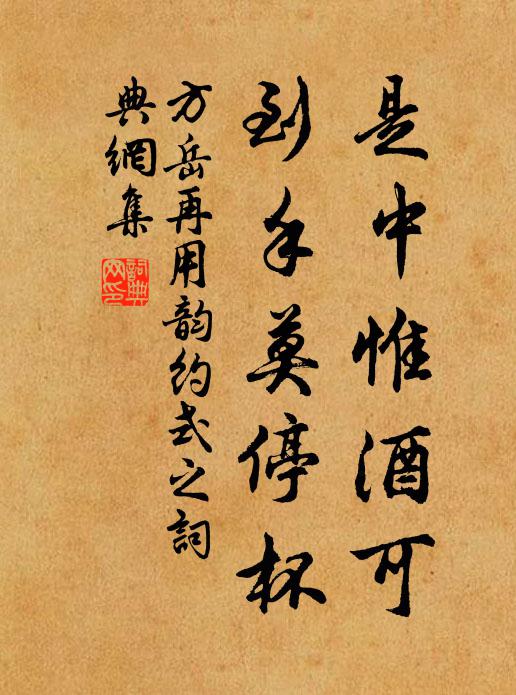 是中惟酒可
到手莫停杯
方岳再用韵约式之詞
典網集
詞典網印